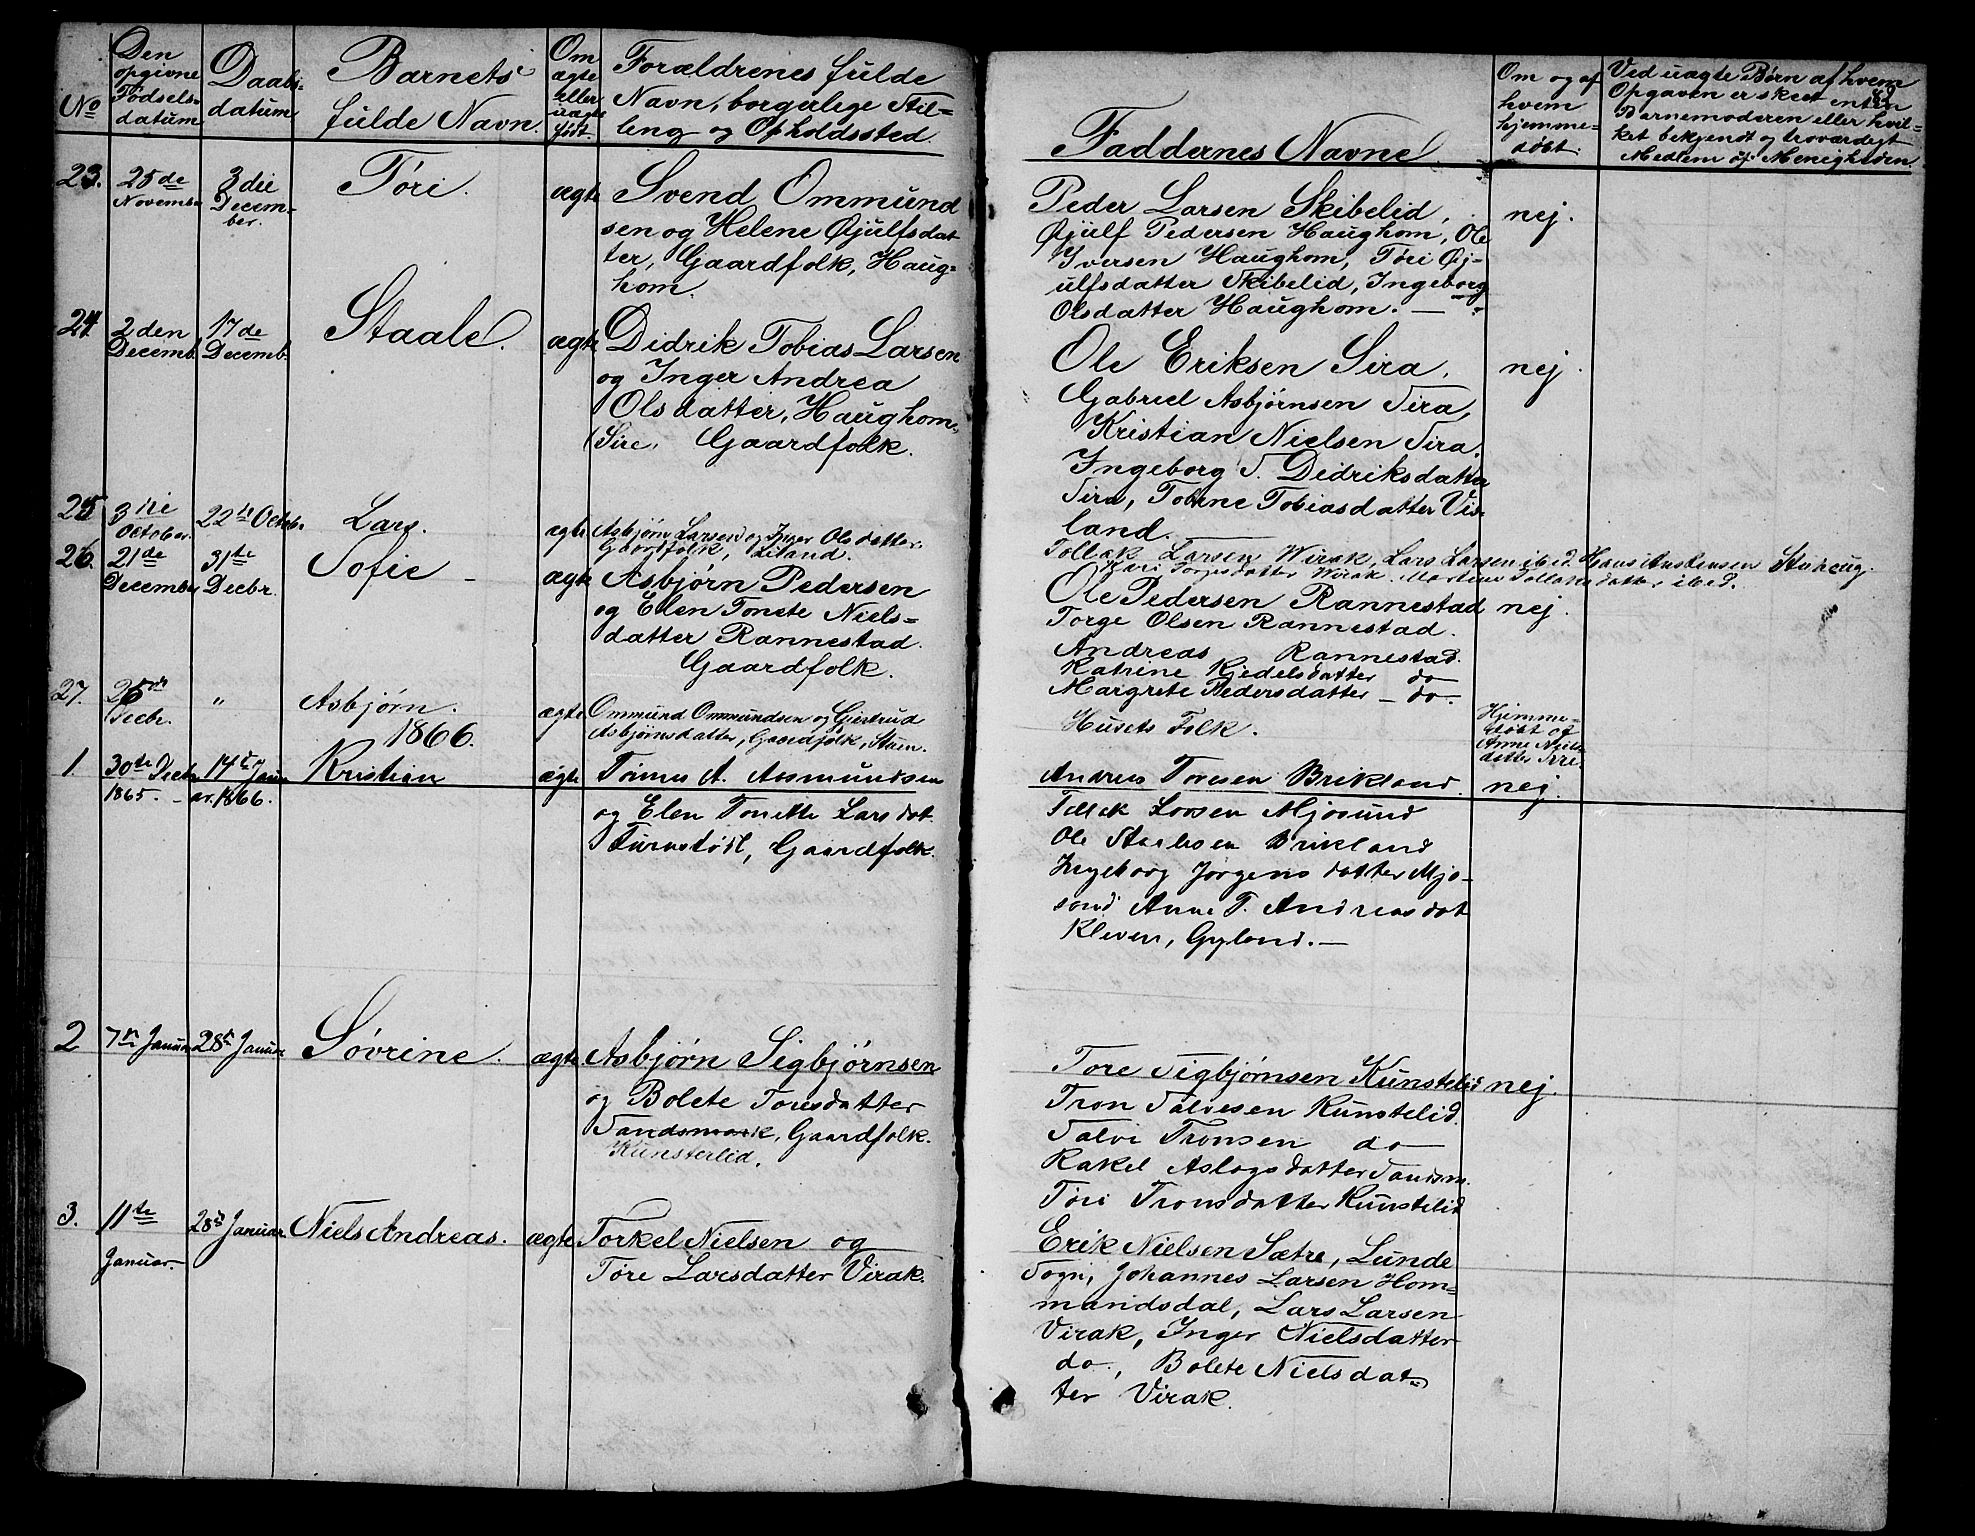 No
Den opgivne Fødsels-datum
Daabs-datum
Barnets fulde Navn.
Om ægte eller uægte født.
Forældrenes fulde
Navn, borgerlige Stil-
ling og Opholdssted.
Faddernes Navne.
Om og af hvem hjemme-døbt.
Ved uægte Børn af hvem
Opgaven er skeet enten
Barnemoderen eller hvil-
ket bekjendt og troværdigt
Medlem af Menigheden.
23. 25de Novembr 3die Decem-ber. Tøri. ægte Svend Ommund
sen og Helene Øjulfsdat
ter, Gaardfolk, Haug=
hom.
Peder Larsen Skibelid, nej.
Øjulf Pedersen Haughom, Ole
Iversen Haughom, Tøri Øj-
ulfsdatter Skibelid, Ingeborg
Olsdatter Haughom. —
24. 2den Decemb. 17de Decemb. Staale. ægte Didrik Tobias Larsen
og Inger Andrea
Olsdatter, Haughom-
Sire, Gaardfolk.
Ole Eriksen Sira, nej.
Gabriel Asbjørnsen Sira,
Kristian Nielsen Sira,
Ingeborg S. Didriksdatter
Sira, Tobine Tobiasdatter Vis-
land.
25 3die October. 22de Octobr. Lars. ægte Asbjørn Larsen og Inger Olsdatter
Gaardfolk, Liland.
Tollak Larsen Wirak, Lars Larsen ibid. Hans
Wirak. Tollaksdatter ibid.
26. 21de December 31te Decbr. Sofie — ægte Asbjørn Pedersen
og Elen Tonete Niels=
datter Rannestad.
Gaardfolk.
Ole Pedersen Rannestad nej.
Torge Olsen Rannestad.
Andreas Rannestad.
Katrine Kjedelsdatter do
Margrete Pedersdatter — do.
27. 26de Decbr. " Asbjørn. ægte Ommund Ommundsen og Giertrud
Asbjørnsdatter, Gaardfolk,
Husets Folk.
Hjemme-
døbt af
Anne
datter
1866.
1. 30te Decbr 1865. 14de Janu ar. 1866. Kristian ægte Tønnes A. Aasmundsen
og Elen Tonette Larsdat.
Gaardfolk.
Andreas Toresen Brikland. nej.
Tollek Larsen Mjosund
Ole Brikland
Ingeborg Jørgensdatter Mjo-
sund Anne T. Andreasdat
Kleven, Gyland. —
2 7de Januar 28de Januar Søvrine. ægte Asbjørn Sigbjørnsen
og Bolete Toresdatter
Sandsmark, Gaardfolk.
Kunsterlid.
Tore Sigbjørnsen Kunstelid nej.
Tron Salvesen Kunstelid.
Salve Tronsen do
Rakel Aslagsdatter Sandsm.
Tøri Tronsdatter Kunstelid
3. 11te Januar. 28de Januar. Niels Andreas. ægte Torkel Nielsen og
Tøre Larsdatter Virak.
Erik Nielsen Sætre, Lunde
Sogn, Johannes Larsen Hom=
mandsdal, Lars Larsen
Virak, Inger Nielsdatter
do., Bolete Nielsdat-
ter Virak.